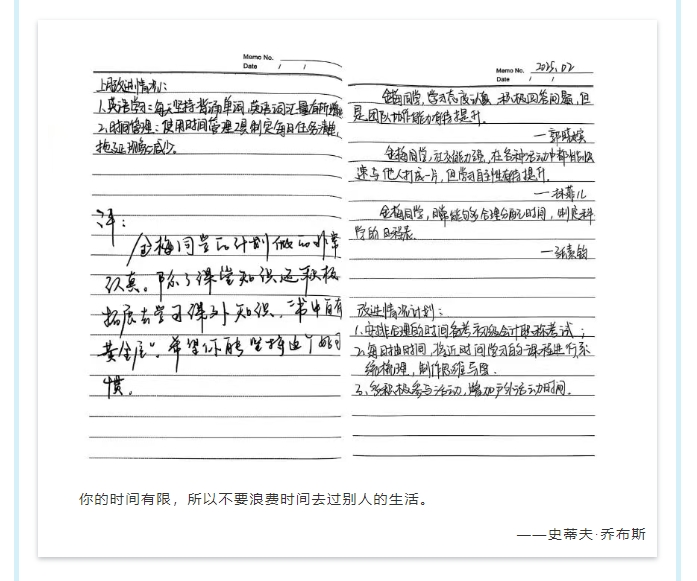 Memo No.
Date / /
上月改进情况：
1.英语学习：每天坚持背诵单词，英语词汇量有所增加
2.时间管理：使用时间管理工具制定每日任务清单，
拖延现象减少。
评：
金梅同学的计划做的非常
认真。除了课堂知识还积极
拓展去学习课外知识，"书中自有
黄金屋"。希望你能坚持这个好习
惯。
Memo No. 2025.02
Date / /
金梅同学，学习态度认真，积极回答问题，但
是团队协作能力有待提升。
金梅同学，社交能力强，在各种活动中都能迅
速与他人打成一片，但学习自主性有待提升。
金梅同学，日常能够合理分配时间，制定科
学的日程表。
改进情况计划：
1.安排合理的时间备考初级会计职称考试；
2.每日抽时间，将近时间学习的课程进行系
统梳理，制作思维导图。
3.多积极参与活动，增加户外活动时间。
你的时间有限，所以不要浪费时间去过别人的生活。
——史蒂夫·乔布斯